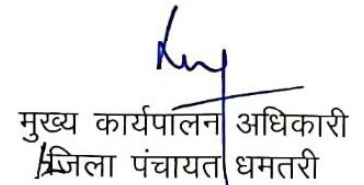 मुख्य कार्यपालन अधिकारी
जिला पंचायत धमतरी